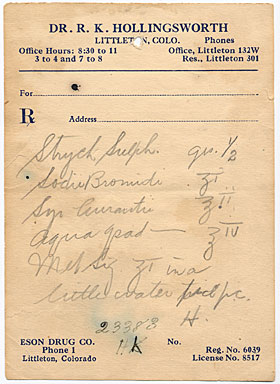 DR. R. K. HOLLINGSWORTH
LITTLETON, COLO.
Office Hours: 8:30 to 11
3 to 4 and 7 to 8
Phones
Office, Littleton 132W
Res., Littleton 301
For
R Address
Strych Sulph. gr. 1/2
Sodii Bromide ʒi
Syr Aurantii ʒii
aqua qsad — ʒiv
M et Sig ʒi in a
little water
H.
23383
ESON DRUG CO.
Phone 1
Littleton, Colorado
No.
Reg. No. 6039
License No. 8517